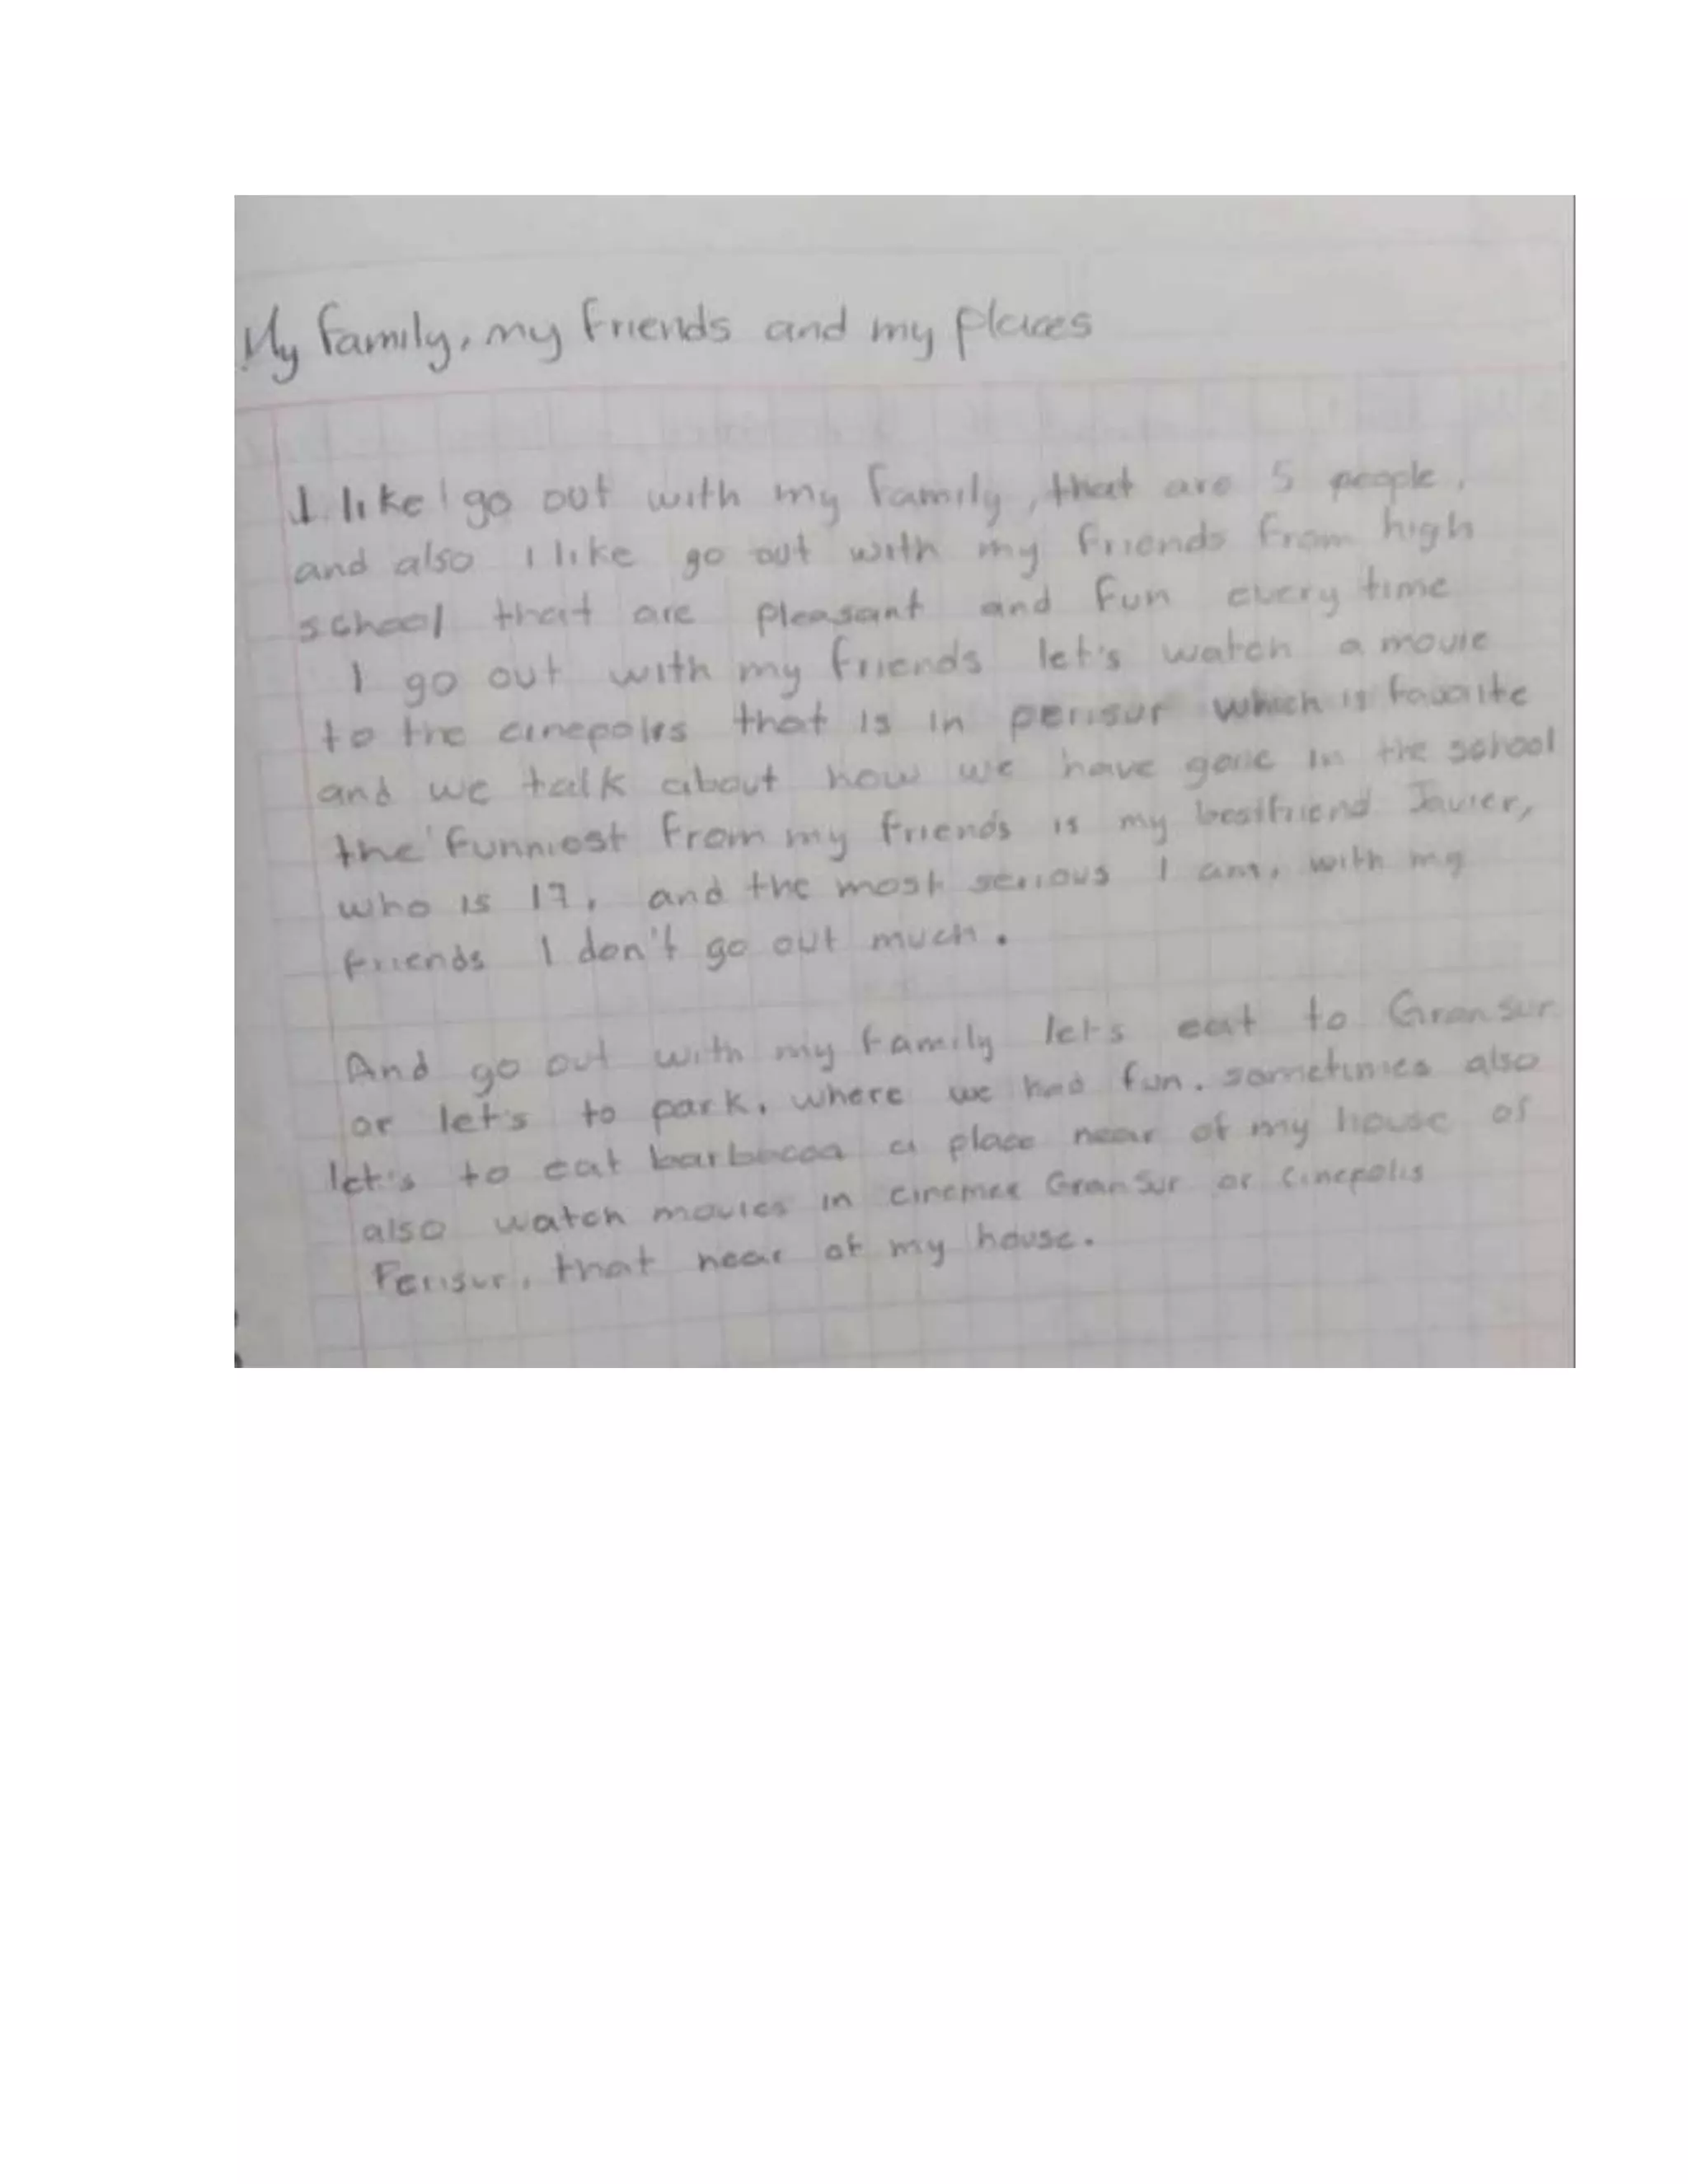 My family, my friends and my places
I like go out with my family, that are 5 people,
and also I like go out with my friends from high
school that are pleasant and fun every time
I go out with my friends let's watch a movie
to the cinepolis that is in perisur which is favorite
and we talk about how we have gone in the school
the funniest from my friends is my bestfriend Javier,
who is 17, and the most serious I am, with my
friends I don't go out much.
And go out with my family let's eat to Gran Sur
or let's to park, where we had fun. sometimes also
let's to eat barbacoa a place near of my house or
also watch movies in cinemex Gran Sur or Cinepolis
Perisur, that near of my house.